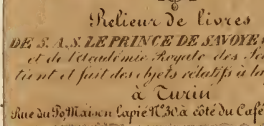 Relieur de livres
DE S. A. S. LE PRINCE DE SAVOYE
et de l'académie Royale des
tient et fait des objets relatifs à
à Turin
Rue du Po Maison Lapié N.º 30 à côté du Café